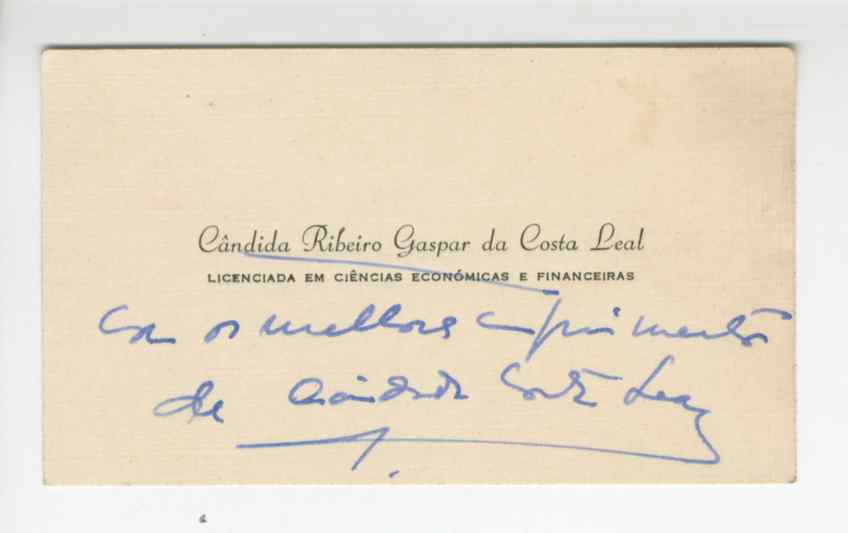 Cândida Ribeiro Gaspar da Costa Leal
LICENCIADA EM CIÊNCIAS ECONÓMICAS E FINANCEIRAS
Com os melhores cumprimentos
de Cândida Costa Leal